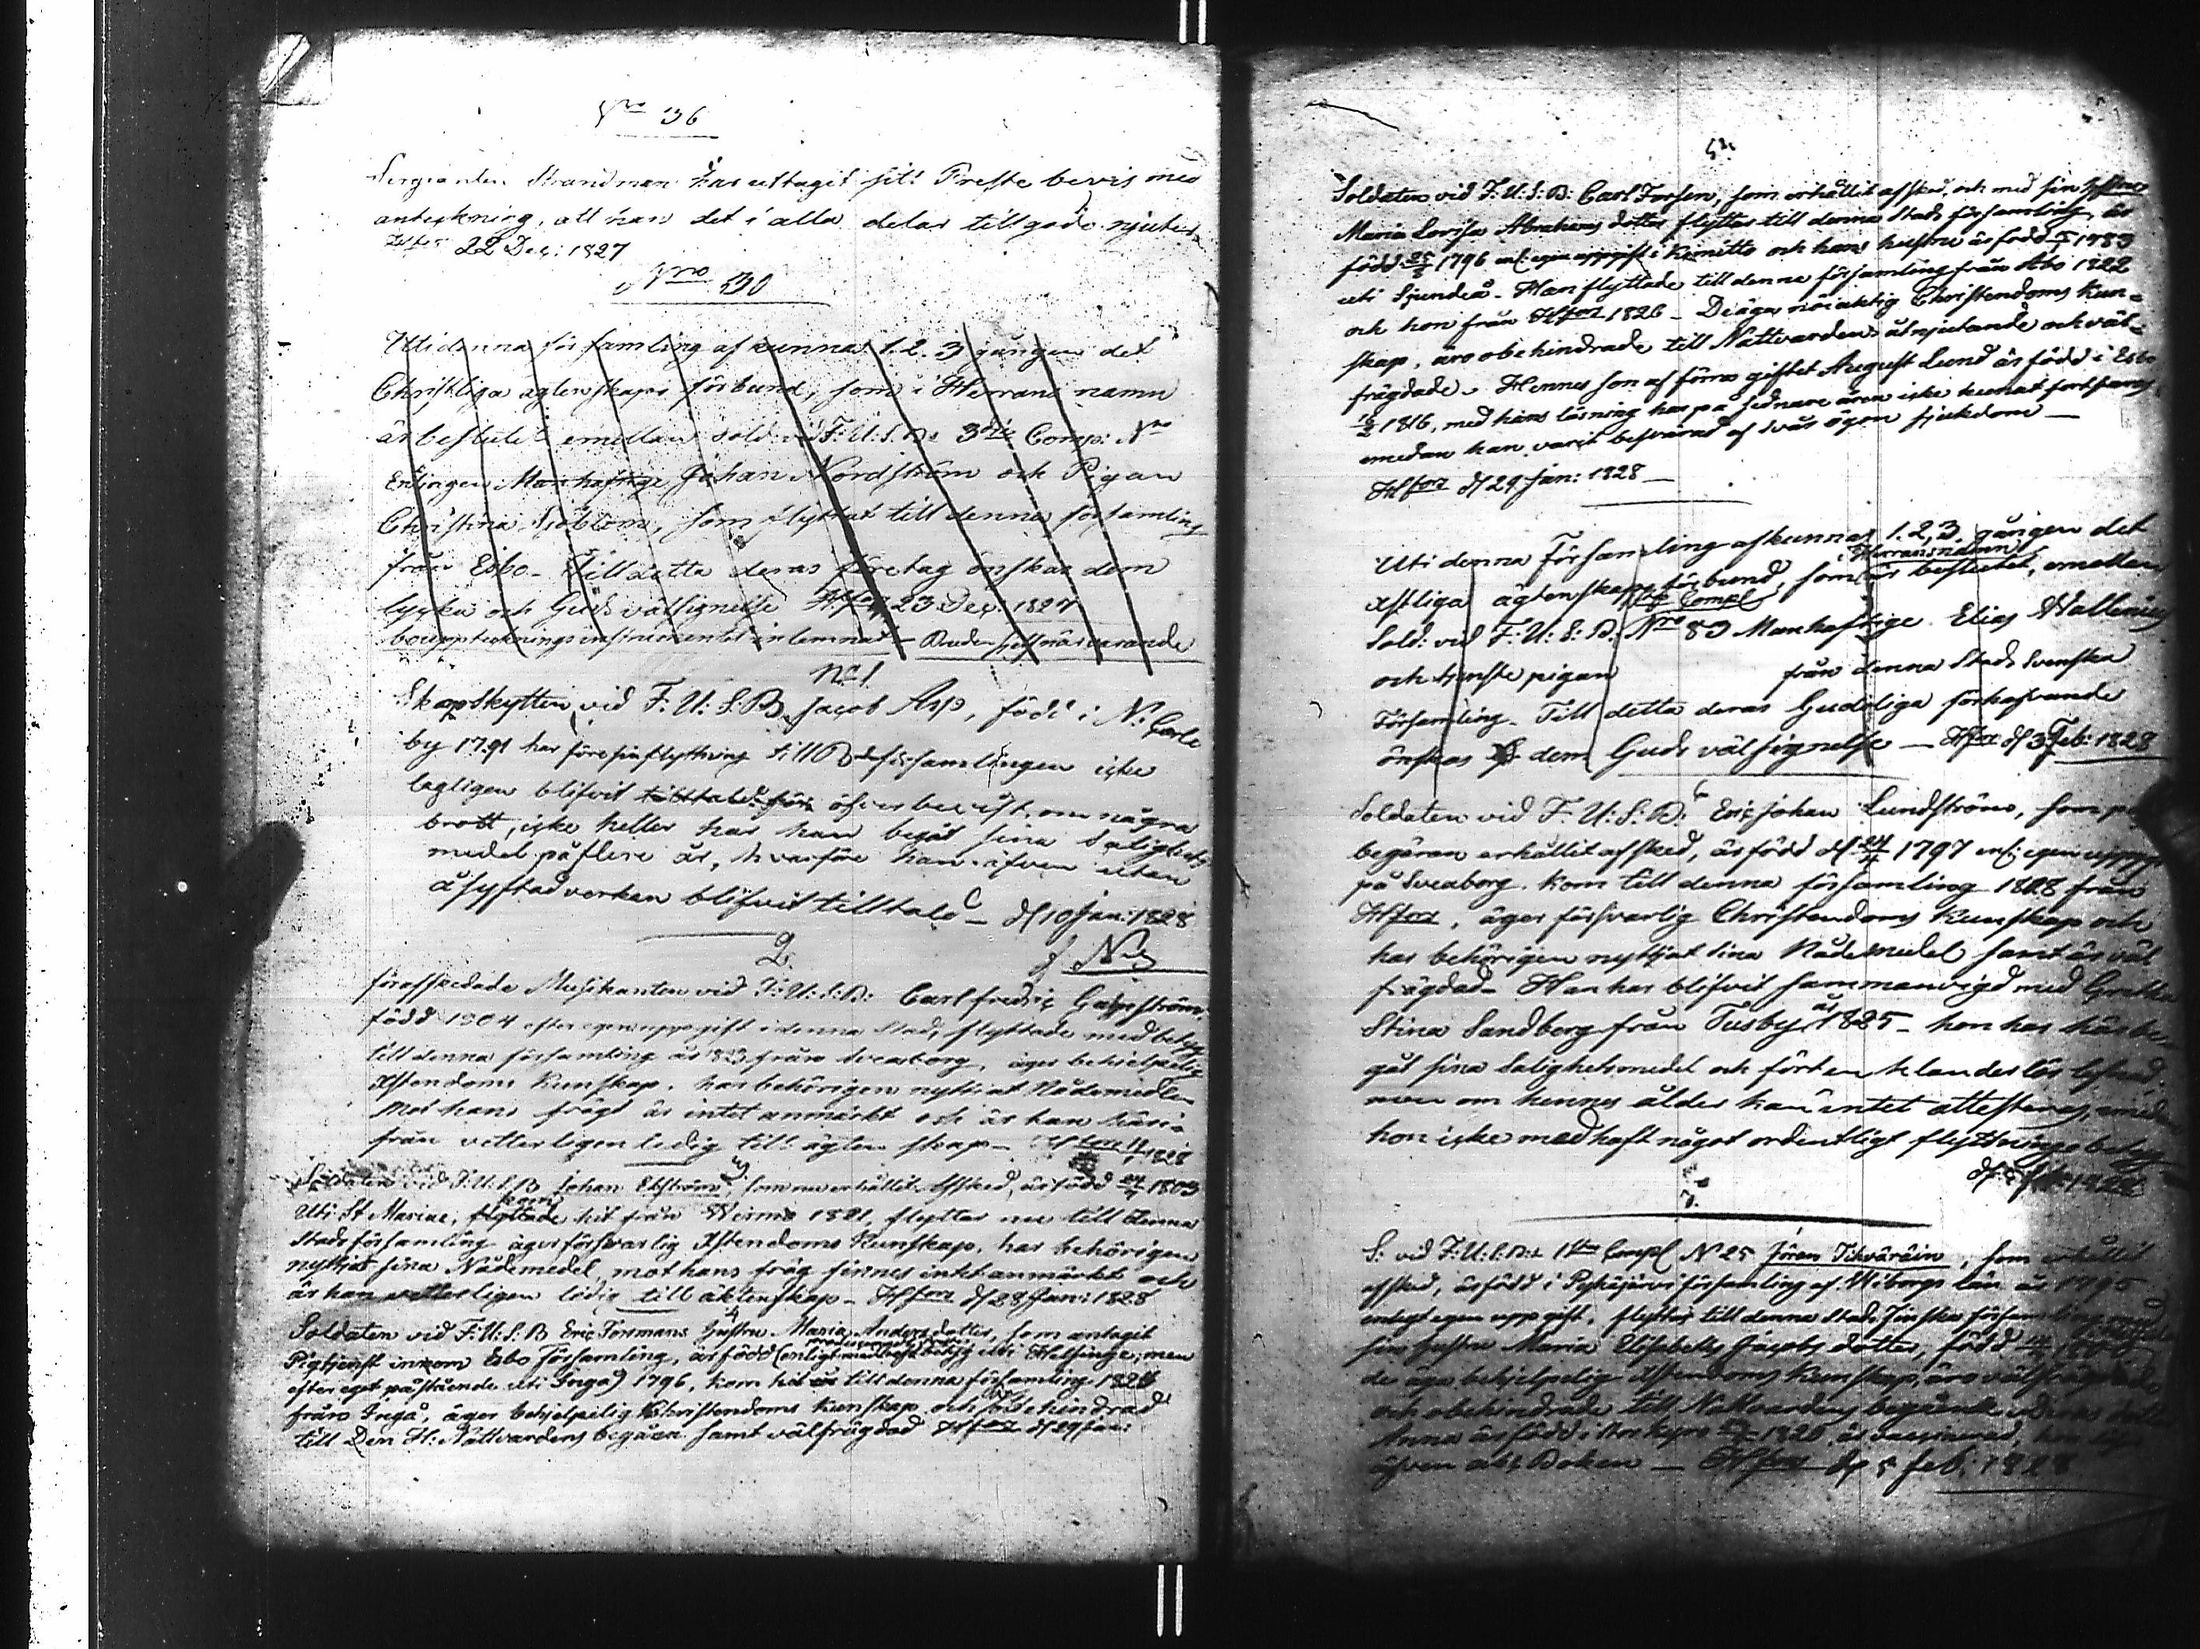 Nro 36
Sergeanten Strandman har uttagit sitt Preste bevis med
anteckning, att han det i alla delar tillgodo njuter
Hfors 22 Dec: 1827
Nro 30
Uti denna församling afkunnas 1. 2. 3 gången det
Christliga äktenskaps förbund, som i Herrans namn
är beslutit emellan Sold: vid F: U: S: B: 3die Comp: Nro
Manhaftige Johan Nordström och Pigan
Christina Sjöblom, som flyttat till denna församling
från Esbo - Till detta deras företag önskas dem
lycka och Guds välsignelse Hfors 23 Dec: 1827
bouppteckningsinstrumentet inlemnat - Bruden sjelf närvarande
No 1
Skarpskytten vid F: U: S: B Jacob Asp, född i N: Carle
by 1791 har före sin flyttning till församlingen icke
lagligen blifvit tilltalad för öfverbevist, om några
brott, icke heller har han begåt sina Salighets
medel på flere år, hvarföre han äfven utan
åsyftad verkan blifvit tilltald - d 10 Jan: 1828
2
förafskedade Musikanten vid F: U: S: B: Carl Fredric
född 1804 efter egen uppgift i denna Stad, flyttade med betyg
till denna församling år från Sveaborg, äger behielpelig
Xstendoms Kunskap, har behörigen nyttjat Nådemedlen
Mot hans frägd är intet anmärkt och är han häri-
från vitterligen ledig till äktenskap - Hfors 1828
3
Soldaten vid F: U: S: B Johan Ekström, som nu erhållit Afsked, är född 1803
Uti St Mariae, flyttade kom hit från Wirmo 1821, flyttar nu till denna
Stads församling äger försvarlig Xstendoms Kunskap, har behörigen
nyttjat sina Nådemedel, mot hans fräg finnes intet anmärkt och
är han vitterligen ledig till äktenskap - Hfors d 28 Jan: 1828
4
Soldaten vid F: U: S: B Eric Forsmans Hustru Maria Anders dotter, som antagit
Pigtjenst innom Esbo församling, är född (enligt medhaft betyg uti Helsinge, men
efter eget påstående uti Ingå) 1796, kom hit till denna församling 182
från Ingå, äger behjelpelig Christendoms kunskap och obehindrad
till Den H: Nattvardens begåen samt välfrägdad Hfors d 29 Jan:
5.
Soldaten vid F: U: S: B: Carl Forsen, som erhållit afsked, och med sin hustru
Maria Lovisa Abrahams dotter flyttar till denna Stads församling, är
född 1796 enl: egen uppgift i Kimitto och hans hustru är född 1783
uti Sjundeå - Han flyttade till denne församling från Åbo 1822
och hon från Hfors 1826 - De äga nöiaktig Christendoms Kun-
skap, äro obehindrade till Nattvardens åtnjutande och väl-
frägdade. Hennes son af förra giftet August Lund är född i Esbo
1816, med hans läsning har på sednare åren icke kunnat fortfaras
emedan han varit besvärad af svår ögon sjukdom -
Hfors d 29 Jan: 1828 -
Uti denna Församling afkunnas 1. 2, 3. gången det
Xstliga ägtenskaps förbund, som i Herrans namn är beslutet, emellan
Sold: vid F: U: S: B: Comp Nro 83 Manhaftige Elias Wallenius
och pigan från denna Stads Svenska
Församling - Till detta deras Gudeliga förehafvande
önskas dem Guds välsignelse - Hfors d 3 Feb: 1828
6
Soldaten vid F: U: S: B: Eric Johan Lundström, som på
begäran erhållit afsked, är född d 1797 enl: egen uppg
på Sveaborg. kom till denna församling 18 från
Hfors, äger försvarlig Christendoms Kunskap och
har behörigen nyttjat sina Nådemedel samt är väl
frägdad - Han har blifvit sammanvigd med Gretha
Stina Sandberg från Tusby år 1825 - hon har här be-
gåt sina Salighetsmedel och fört en klanderlös lefnad,
men om hennes ålder kan intet attesteras, emedan
hon icke medhaft något ordentligt flyttnings betyg
1828
7.
S: vid F: U: S: B: Comp N 25 Jöran, som erhållit
afsked, är född i församling af Wiborgs län år 1795
enligt egen uppgift, flyttar till denna Stads Finska församling med
sin hustru Maria Elisabeth Jacobs dotter, född
de äga behjelpelig Xstendoms Kunskap, äro välfrägdade
och obehindrade till Nattvardens begående Deras dotter
Anna är född i 1826, är vaccinerad,
äfven abc Boken - Hfors d 5 Feb: 1828